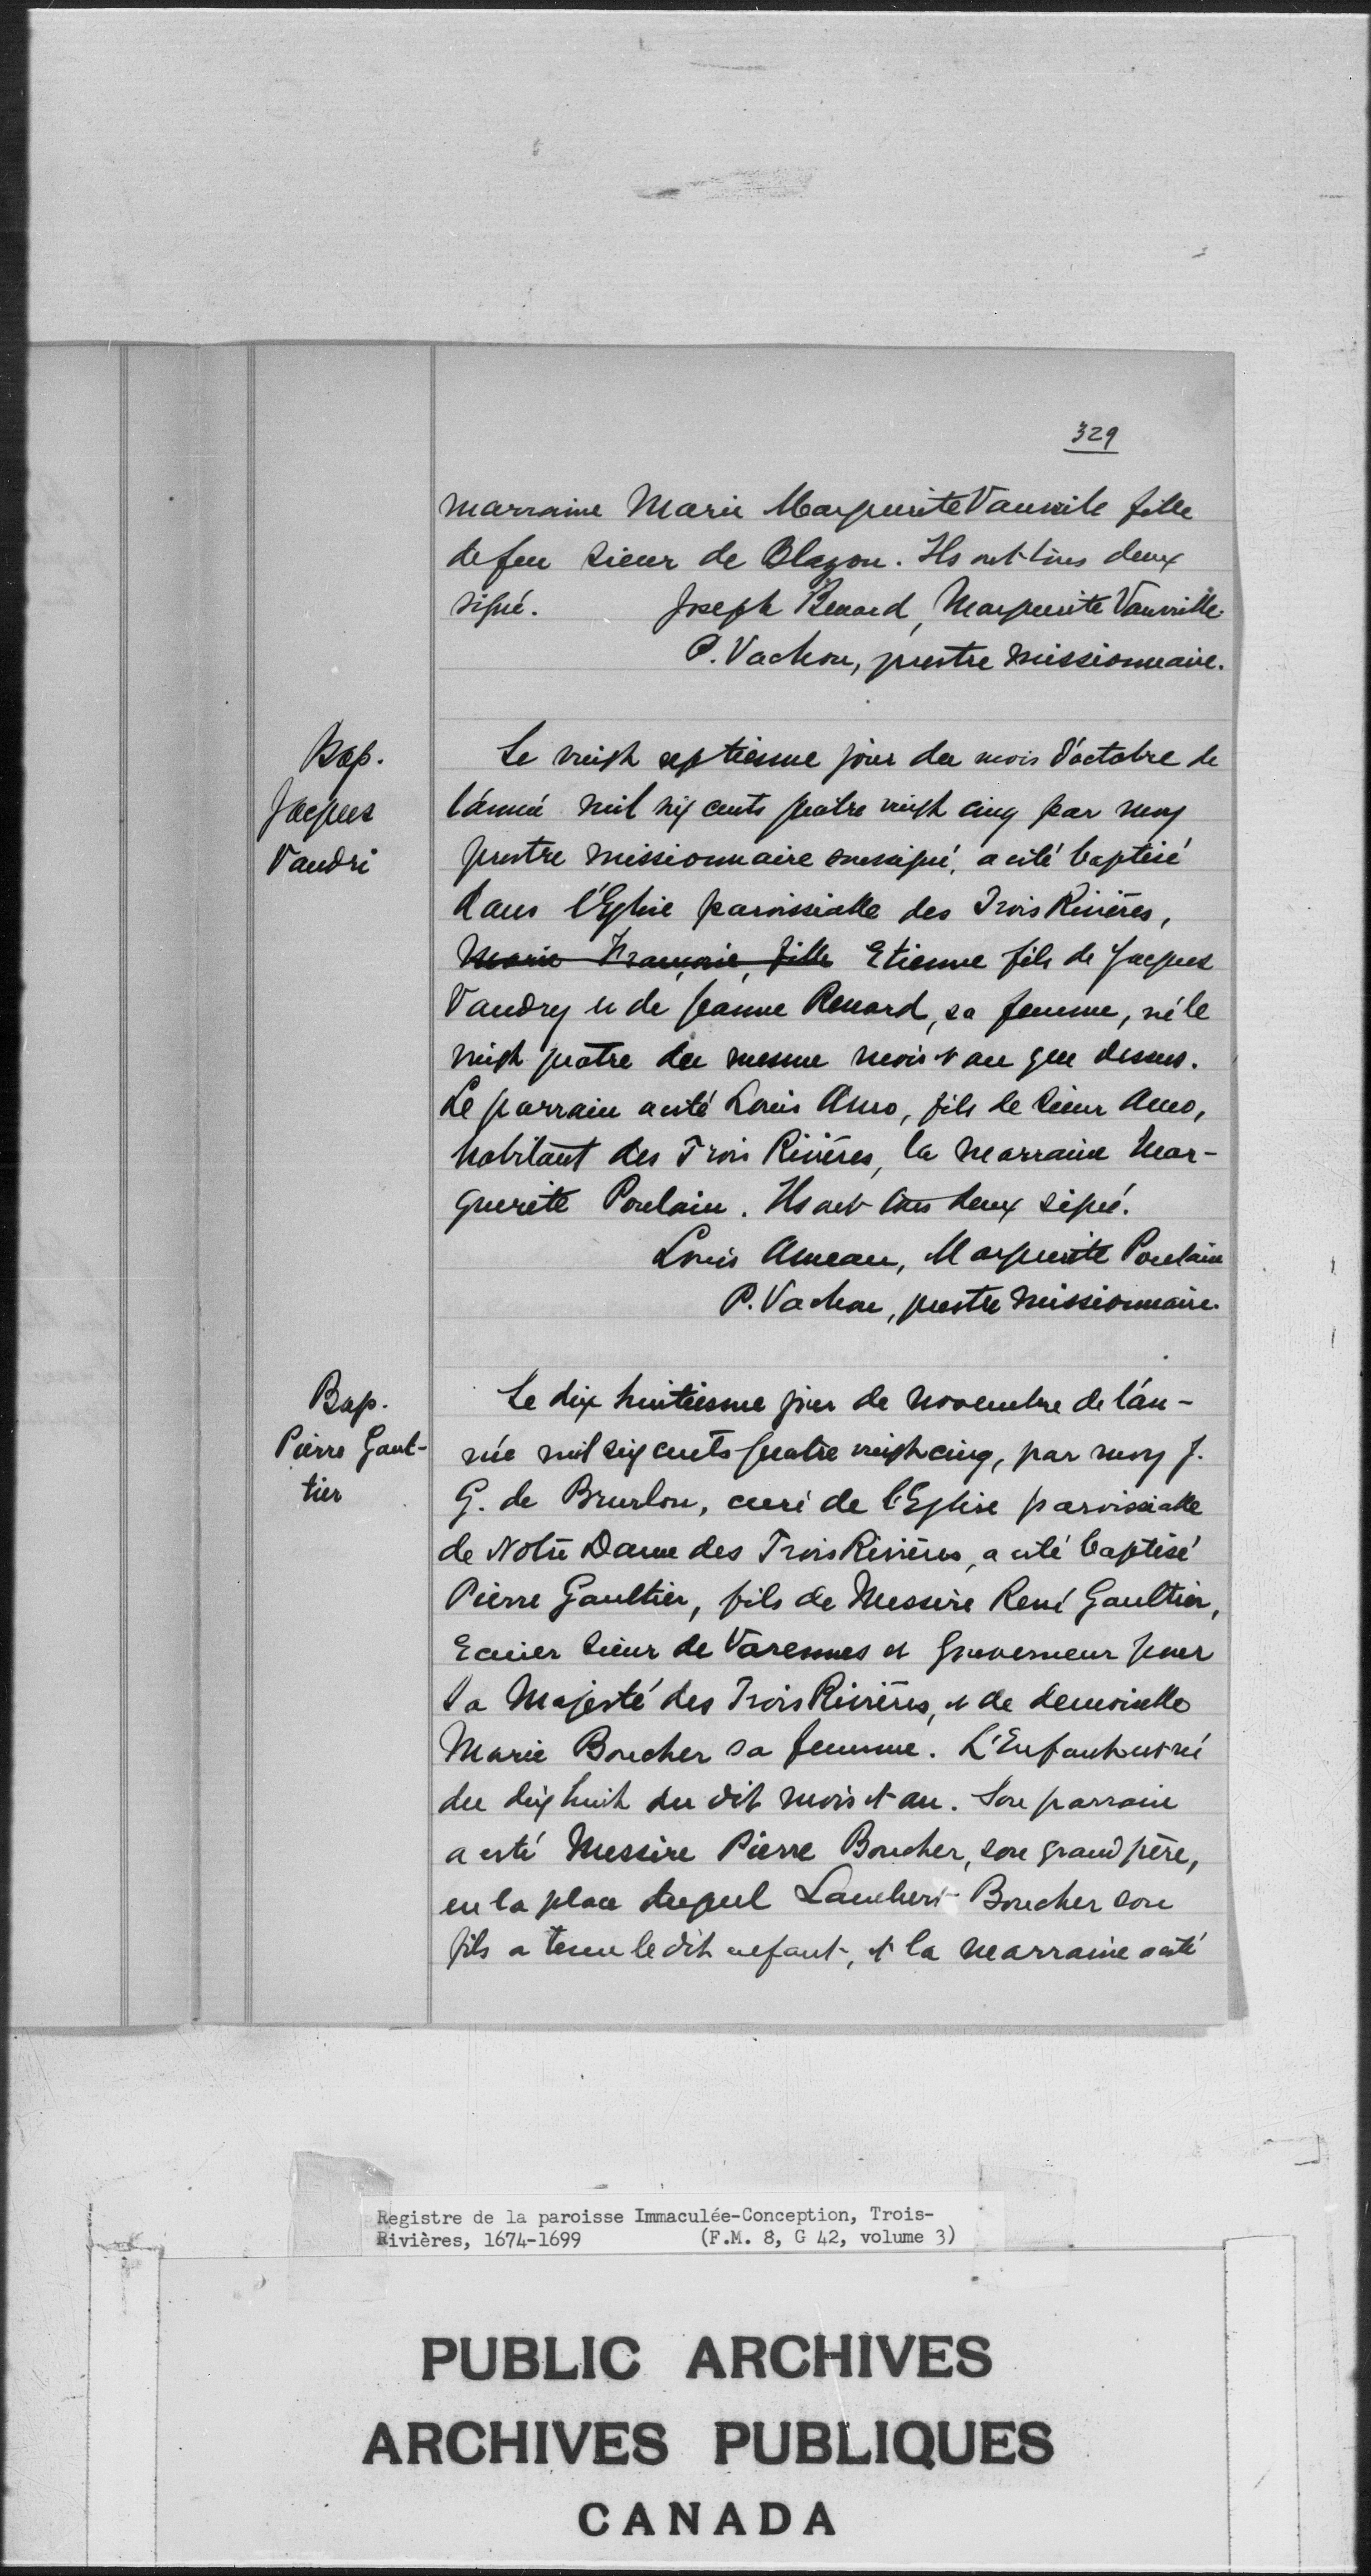 329
marraine Marie Marguerite Vauvile fille
de feu Sieur de Blazon. Ils ont tous deux
signé. Joseph Benard, Marguerite Vauville
P. Vachon, prestre missionnaire.
Bap.
Jacques
Vaudri
Le vingt septiesme jour du mois d'octobre de
l'année mil six cents quatre vingt cinq par moy
prestre missionnaire soussigné, a esté baptisé
dans l'Eglise paroissialle des Trois Rivières,
Marie Françoise, fille Etienne fils de Jacques
Vaudry et de Jeanne Renard, sa femme, né le
vingt quatre du mesme mois et an que dessus.
Le parrain a esté Louis Amo, fils de Sieur Amo,
habitant des Trois Rivières, la marraine Mar-
guerite Poulain. Ils ont tous deux signé.
Louis Ameau, Marguerite Poulain
P. Vachon, prestre missionnaire.
Bap.
Pierre Gaul-
tier
Le dix huitiesme jour de novembre de l'an-
née mil six cents quatre vingt cinq, par moy J.
G. de Brurlon, curé de l'Eglise paroissialle
de Notre Dame des Trois Rivières, a esté baptisé
Pierre Gaultier, fils de Messire René Gaultier,
Ecuier Sieur de Varennes et Gouverneur pour
Sa Majesté des Trois Rivières, et de demoiselle
Marie Boucher sa femme. L'Enfant est né
du dix huit du dit mois et an. Son parrain
a esté Messire Pierre Boucher, son grand père,
en la place duquel Lambert Boucher son
fils a tenu le dit enfant, et la marraine a esté
Registre de la paroisse Immaculée-Conception, Trois-
Rivières, 1674-1699 (F.M. 8, G 42, volume 3)
PUBLIC ARCHIVES
ARCHIVES PUBLIQUES
CANADA